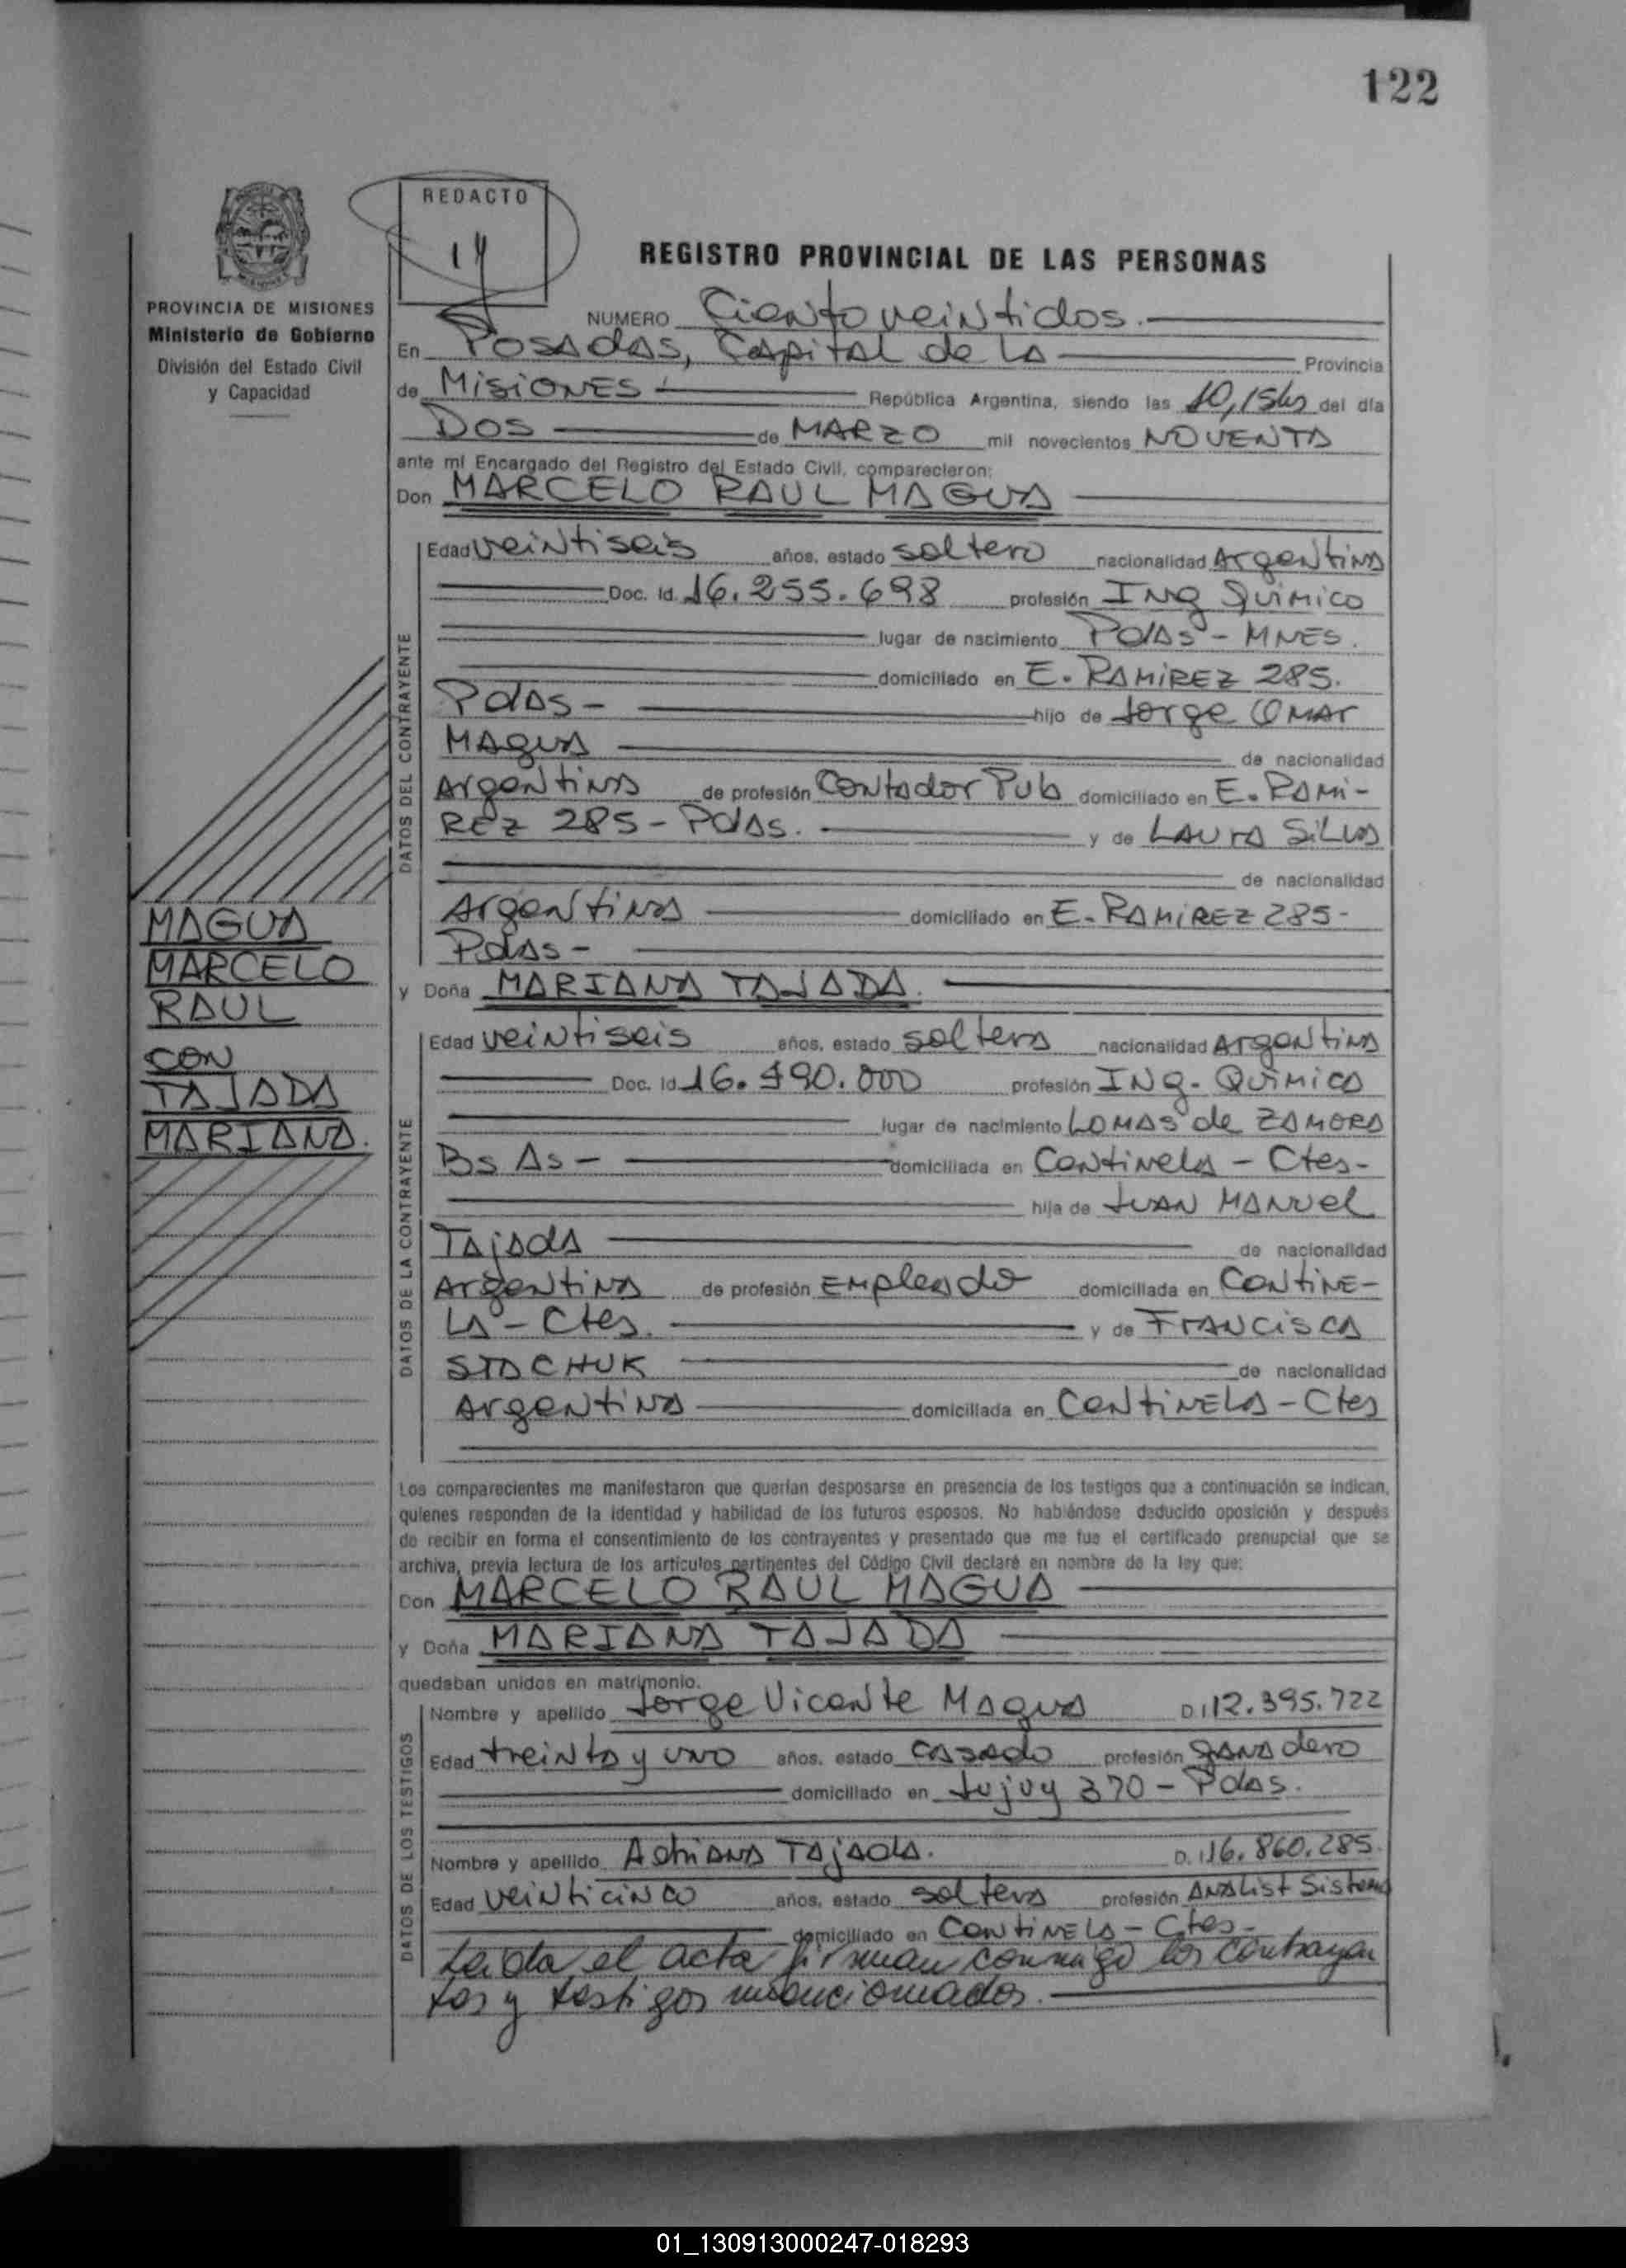 122
REDACTO
14
REGISTRO PROVINCIAL DE LAS PERSONAS
PROVINCIA DE MISIONES
Ministerio de Gobierno
División del Estado Civil
y Capacidad
NUMERO Ciento veintidos.
En Posadas, Capital de la Provincia
de Misiones República Argentina, siendo las 10,15hs del día
Dos de MARZO mil novecientos NOVENTA
ante mí Encargado del Registro del Estado Civil, comparecieron:
Don MARCELO RAUL MAGUA
DATOS DEL CONTRAYENTE
Edad veintiseis años, estado soltero nacionalidad Argentina
Doc. Id. 16.255.698 profesión Ing Quimico
lugar de nacimiento Pdas - MNES.
domiciliado en E. RAMIREZ 285.
Pdas - hijo de Jorge OMAr
MAgua de nacionalidad
Argentina de profesión Contador Pub domiciliado en E. RAMi-
REZ 285 - Pdas. y de LAUrA SiLva
de nacionalidad
Argentina domiciliado en E. RAMIREZ 285 -
Pdas -
y Doña MARIANA TAJADA.
MAGUA
MARCELO
RAUL
CON
TAJADA
MARIANA.
DATOS DE LA CONTRAYENTE
Edad veintiseis años, estado soltera nacionalidad Argentina
Doc. Id. 16.490.000 profesión Ing. Quimico
lugar de nacimiento LOMAS de ZAMORA
Bs As - domiciliada en Centinela - Ctes -
hija de JUAN MANUel
Tajada de nacionalidad
Argentina de profesión Empleado domiciliada en Centine-
la - Ctes. y de Francisca
STACHUK de nacionalidad
Argentina domiciliada en Centinela - Ctes
Los comparecientes me manifestaron que querían desposarse en presencia de los testigos que a continuación se indican,
quienes responden de la identidad y habilidad de los futuros esposos. No habiéndose deducido oposición y después
de recibir en forma el consentimiento de los contrayentes y presentado que me fue el certificado prenupcial que se
archiva, previa lectura de los artículos pertinentes del Código Civil declaré en nombre de la ley que:
Don MARCELO RAUL MAGUA
y Doña MARIANA TAJADA
quedaban unidos en matrimonio.
DATOS DE LOS TESTIGOS
Nombre y apellido Jorge Vicente Magua D.I 12.395.722
Edad treinta y uno años, estado casado profesión ganadero
domiciliado en Jujuy 370 - Pdas.
Nombre y apellido Adriana Tajada. D.I 16.860.285.
Edad veinticinco años, estado soltera profesión Analist Sistema
domiciliado en Centinela - Ctes -
Leida el acta firman conmigo los contrayen
tes y testigos mencionados.
01_130913000247-018293